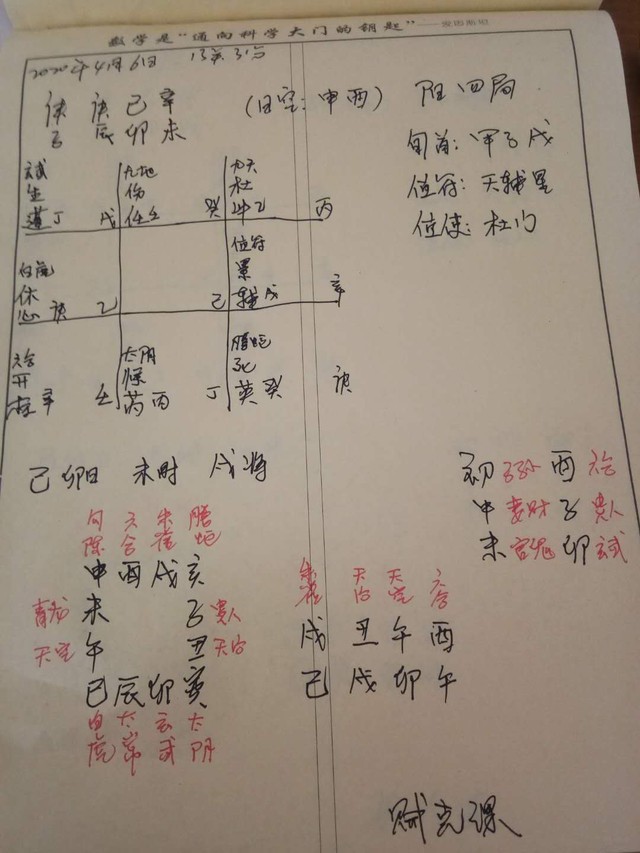 数学是“通向科学大门的钥匙”——爱因斯坦
2020年4月6日 13点31分
庚 庚 己 辛
子 辰 卯 未
(日空:申酉)
阳四局
旬首:甲子戊
值符:天辅星
值使:杜门
玄武 九地 九天
生 伤 杜
蓬丁 戊 任壬 癸 冲乙 丙
白虎 值符
休 景
心庚 乙 己 辅戊 辛
六合 太阴 腾蛇
开 惊 死
柱辛 壬 芮丙 丁 英癸 庚
己卯日 未时 戌将
初 子孙 酉 六合
中 妻财 子 贵人
末 官鬼 卯 玄武
勾陈 六合 朱雀 腾蛇
申 酉 戌 亥
青龙 未 子 贵人
天空 午 丑 天后
巳 辰 卯 寅
白虎 太常 玄武 太阴
朱雀 天后 天空 六合
戌 丑 午 酉
己 戌 卯 午
贼克课